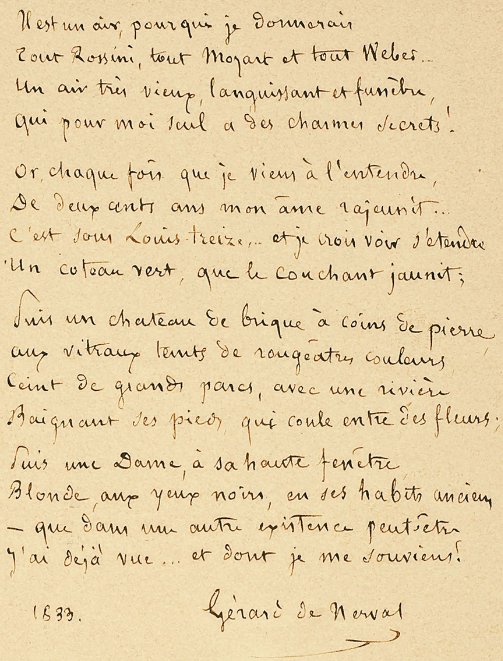 Il est un air, pour qui je donnerais
Tout Rossini, tout Mozart et tout Weber...
Un air très vieux, languissant et funèbre,
Qui pour moi seul a des charmes secrets!
Or, chaque fois que je viens à l'entendre,
De deux cents ans mon âme rajeunit...
C'est sous Louis-treize... et je crois voir s'étendre
Un coteau vert, que le couchant jaunit;
Puis un chateau de brique à coins de pierre,
aux vitraux teints de rougeâtres couleurs,
Ceint de grands parcs, avec une rivière
Baignant ses pieds, qui coule entre des fleurs;
Puis une Dame, à sa haute fenêtre
Blonde, aux yeux noirs, en ses habits anciens
— que dans une autre existence peut-être
J'ai déjà vue... et dont je me souviens!
1833. Gérard de Nerval